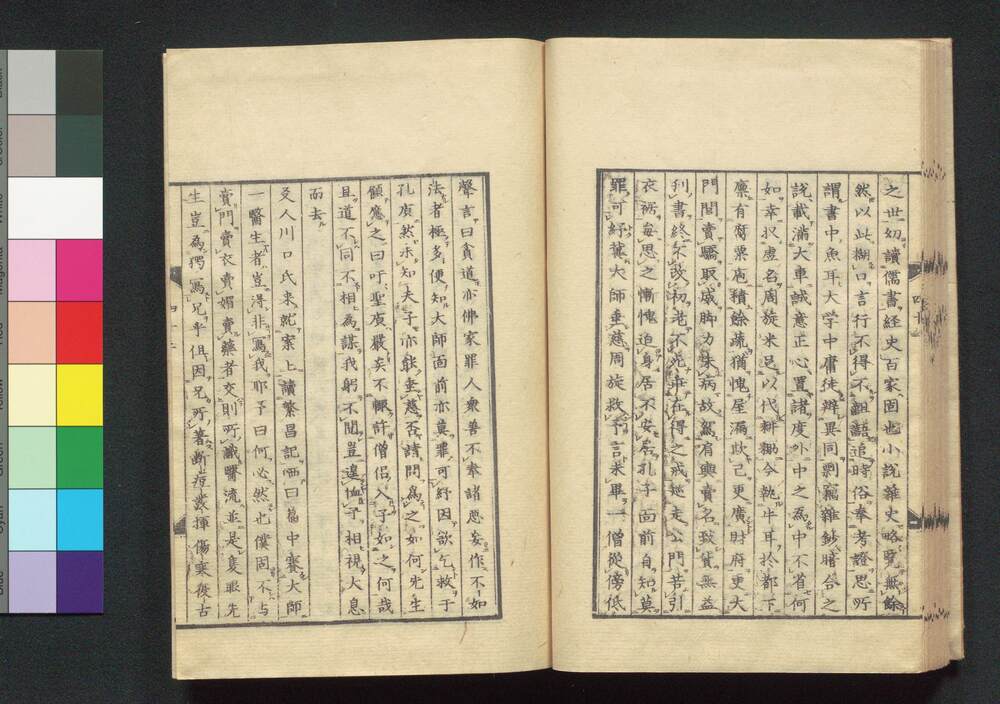 之世幼讀儒書経史百家固也小説雑史略覽無餘
然以此糊口言行不得不齟齬追時俗奉考證思所
謂書中魚耳大学中庸徒辨異同剽竊雑鈔暗合之
説載満大車誠意正心置諸度外中之為中不省何
如幸収虚名周旋米足以代耕耡今執牛耳於都下
廩有腐粟庖積餘蔬猶愧屋漏此己更廣財府更大
門閭賣驕取戚脚力朱病故鴛肩輿賣名致貨無益
利書終不改初老不死幷在得之戒趍走公門苦引
衣裾毎思之慚愧迫身居不安居孔子面前自知莫
罪可紓葉大師垂慈周旋救予言未畢一僧從傍低
聲言曰貧道亦佛家罪人衆善不奉諸悪妄作不如
法者極多便知大師面前亦莫罪可紓因欲乞救于
孔庿然未知夫子亦能垂慈否請問為之如何先生
顧鴬之曰吁聖庿嚴矣不輙許僧侶入子如之何哉
且道不同不相為謀我躬不閲豈遑恤予相視大息
而去
爻人川口氏来就案上讀繁昌記哂曰篇中賽大師
一醫生者豈得非寫我耶予曰何必然也僕固不与
賣門賣衣賣媚賣藥者交則所識醫流並是隻眼先
生豈為獨寫兄乎但因兄所著断痘發揮傷寒復古